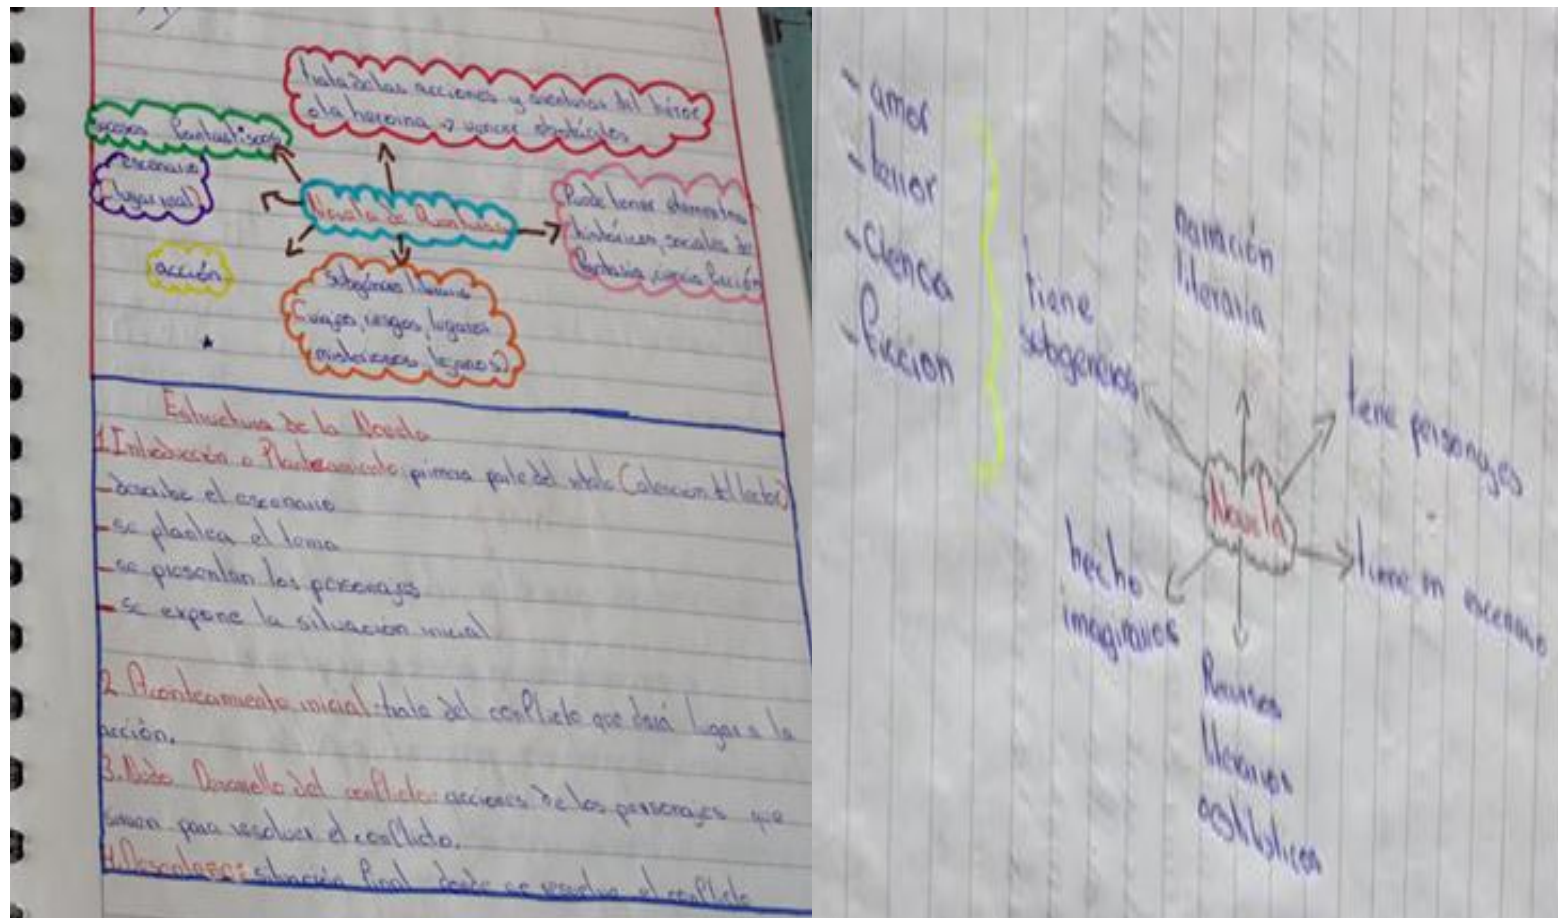 trata de las acciones y aventuras del héroe
o la heroina → vencer obstáculos
sucesos fantastiscos
escenario
(lugar real)
Novela de Aventuras
Puede tener elementos
históricos, sociales de
fantasia, ciencia ficción
acción
subgénero literario
(viajes, riesgos, lugares
misteriosos, lejanos)
Estructura de la Novela
1. Introducción o Planteamiento: primera parte del relato (atencion del lector)
- describe el escenario
- se plantea el tema
- se presentan los personajes
- se expone la situacion inicial
2. Acontecamiento inicial: trata del conflicto que dará lugar a la
acción.
3. Nudo Desarrollo del conflicto: acciones de los personajes que
sirven para resolver el conflicto.
4. Desenlace: situación final donde se resuelve el conflicto
- amor
- terror
- Ciencia
- ficcion
tiene
subgeneros
narración
literaria
tiene personajes
Novela
tiene un escenario
hecho
imaginarios
Recursos
literarios